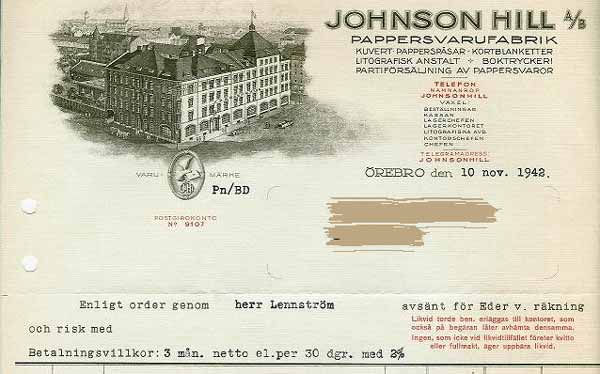 JOHNSON HILL A/B
PAPPERSVARUFABRIK
KUVERT · PAPPERSPÅSAR · KORTBLANKETTER
LITOGRAFISK ANSTALT + BOKTRYCKERI
PARTIFÖRSÄLJNING AV PAPPERSVAROR
TELEFON
NAMNANROP
JOHNSONHILL
VÄXEL:
BESTÄLLNINGAR
KASSAN
LAGERCHEFEN
LAGERKONTORET
LITOGRAFISKA AVD.
KONTORSCHEFEN
CHEFEN
TELEGRAMADRESS:
JOHNSONHILL
VARU- MÄRKE
Pn/BD
ÖREBRO den 10 nov. 1942.
POSTGIROKONTO
No 9107
Enligt order genom herr Lennström avsänt för Eder v. räkning
och risk med
Betalningsvillkor: 3 mån. netto el.per 30 dgr. med 2%
Likvid torde ben. erläggas till kontoret, som
också på begäran låter avhämta densamma.
Ingen, som icke vid likvidtillfället företer kvitto
eller fullmakt, äger uppbära likvid.